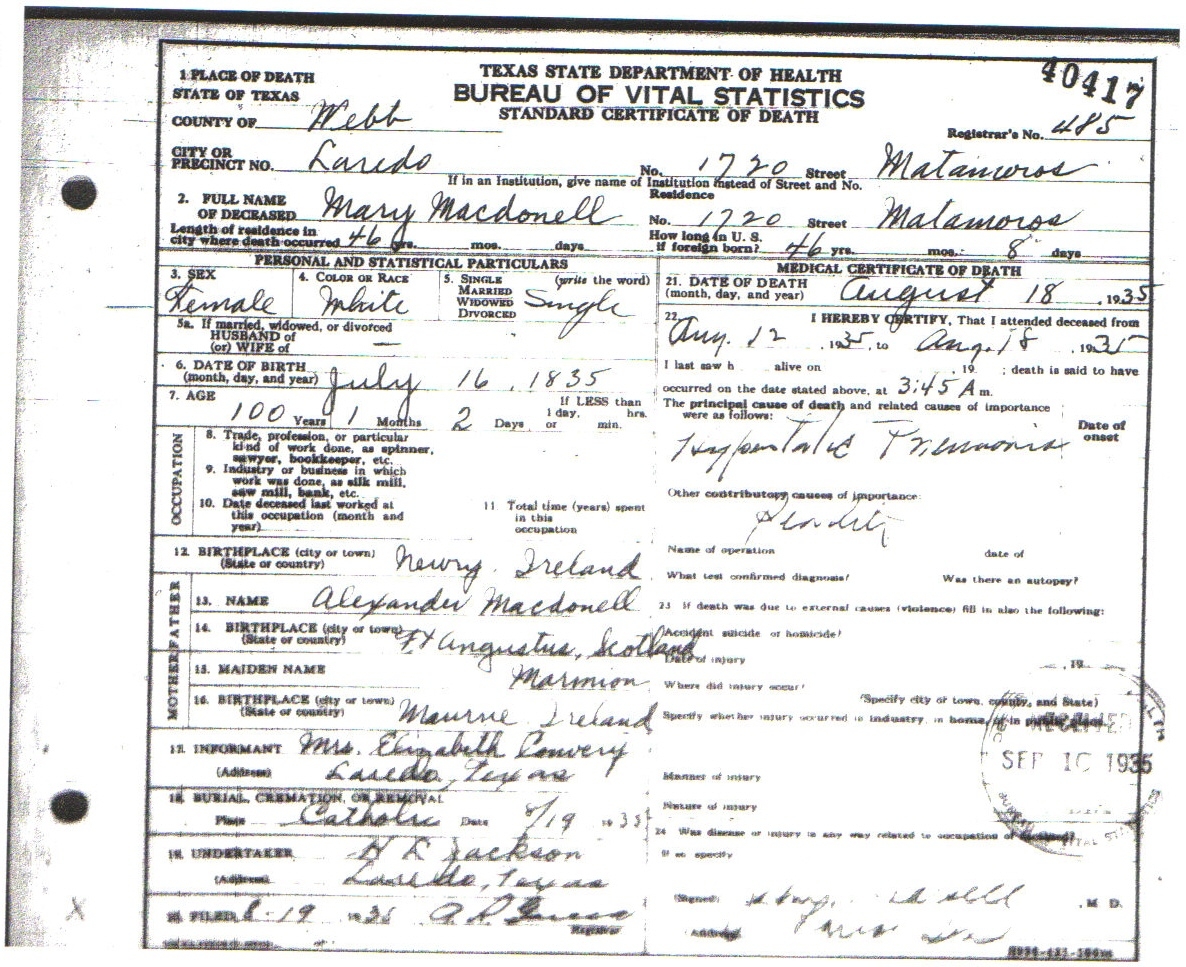 40417
TEXAS STATE DEPARTMENT OF HEALTH
BUREAU OF VITAL STATISTICS
STANDARD CERTIFICATE OF DEATH
1 PLACE OF DEATH
STATE OF TEXAS
COUNTY OF Webb
Registrar's No. 485
CITY OR
PRECINCT NO. Laredo No. 1720 Street Matamoros
If in an Institution, give name of Institution instead of Street and No.
2. FULL NAME
OF DECEASED Mary Macdonell
Residence
No. 1720 Street Matamoros
Length of residence in
city where death occurred 46 yrs. mos. days
How long in U. S.
if foreign born? 46 yrs. mos. 8 days
PERSONAL AND STATISTICAL PARTICULARS
3. SEX
Female
4. COLOR OR RACE
White
5. SINGLE
MARRIED
WIDOWED
DIVORCED
(write the word)
Single
5a. If married, widowed, or divorced
HUSBAND of
(or) WIFE of —
6. DATE OF BIRTH
(month, day, and year) July 16, 1835
7. AGE
100 Years 1 Months 2 Days
If LESS than
1 day, hrs.
or min.
OCCUPATION
8. Trade, profession, or particular
kind of work done, as spinner,
sawyer, bookkeeper, etc.
9. Industry or business in which
work was done, as silk mill,
saw mill, bank, etc.
10. Date deceased last worked at
this occupation (month and
year)
11 Total time (years) spent
in this
occupation
12. BIRTHPLACE (city or town)
(State or country) Newry. Ireland
FATHER
13. NAME Alexander Macdonell
14. BIRTHPLACE (city or town)
(State or country) Ft Angustus, Scotland
MOTHER
15. MAIDEN NAME Marmion
16. BIRTHPLACE (city or town)
(State or country) Mourne Ireland
17. INFORMANT Mrs. Elizabeth Convery
(Address) Laredo, Texas
18. BURIAL, CREMATION, OR REMOVAL
Place Catholic Date 8/19 1935
19. UNDERTAKER Jackson
(Address) Laredo, Texas
20. FILED 8-19 1935
Registrar
MEDICAL CERTIFICATE OF DEATH
21. DATE OF DEATH
(month, day, and year) August 18, 1935
22. I HEREBY CERTIFY, That I attended deceased from
Aug. 12, 1935, to Aug. 18, 1935
I last saw h alive on , 19 ; death is said to have
occurred on the date stated above, at 3:45 A m.
The principal cause of death and related causes of importance
were as follows:
Date of
onset
Hypostatic Pneumonia
Other contributory causes of importance:
Senility
Name of operation date of
What test confirmed diagnosis? Was there an autopsy?
23 If death was due to external causes (violence) fill in also the following:
Accident suicide or homicide?
Date of injury , 19
Where did injury occur?
(Specify city or town, county, and State)
Specify whether injury occurred in industry, in home, or in public place.
Manner of injury
Nature of injury
24 Was disease or injury in any way related to occupation of deceased?
If so specify
Signed , M D.
Address
RECEIVED
SEP 10 1935